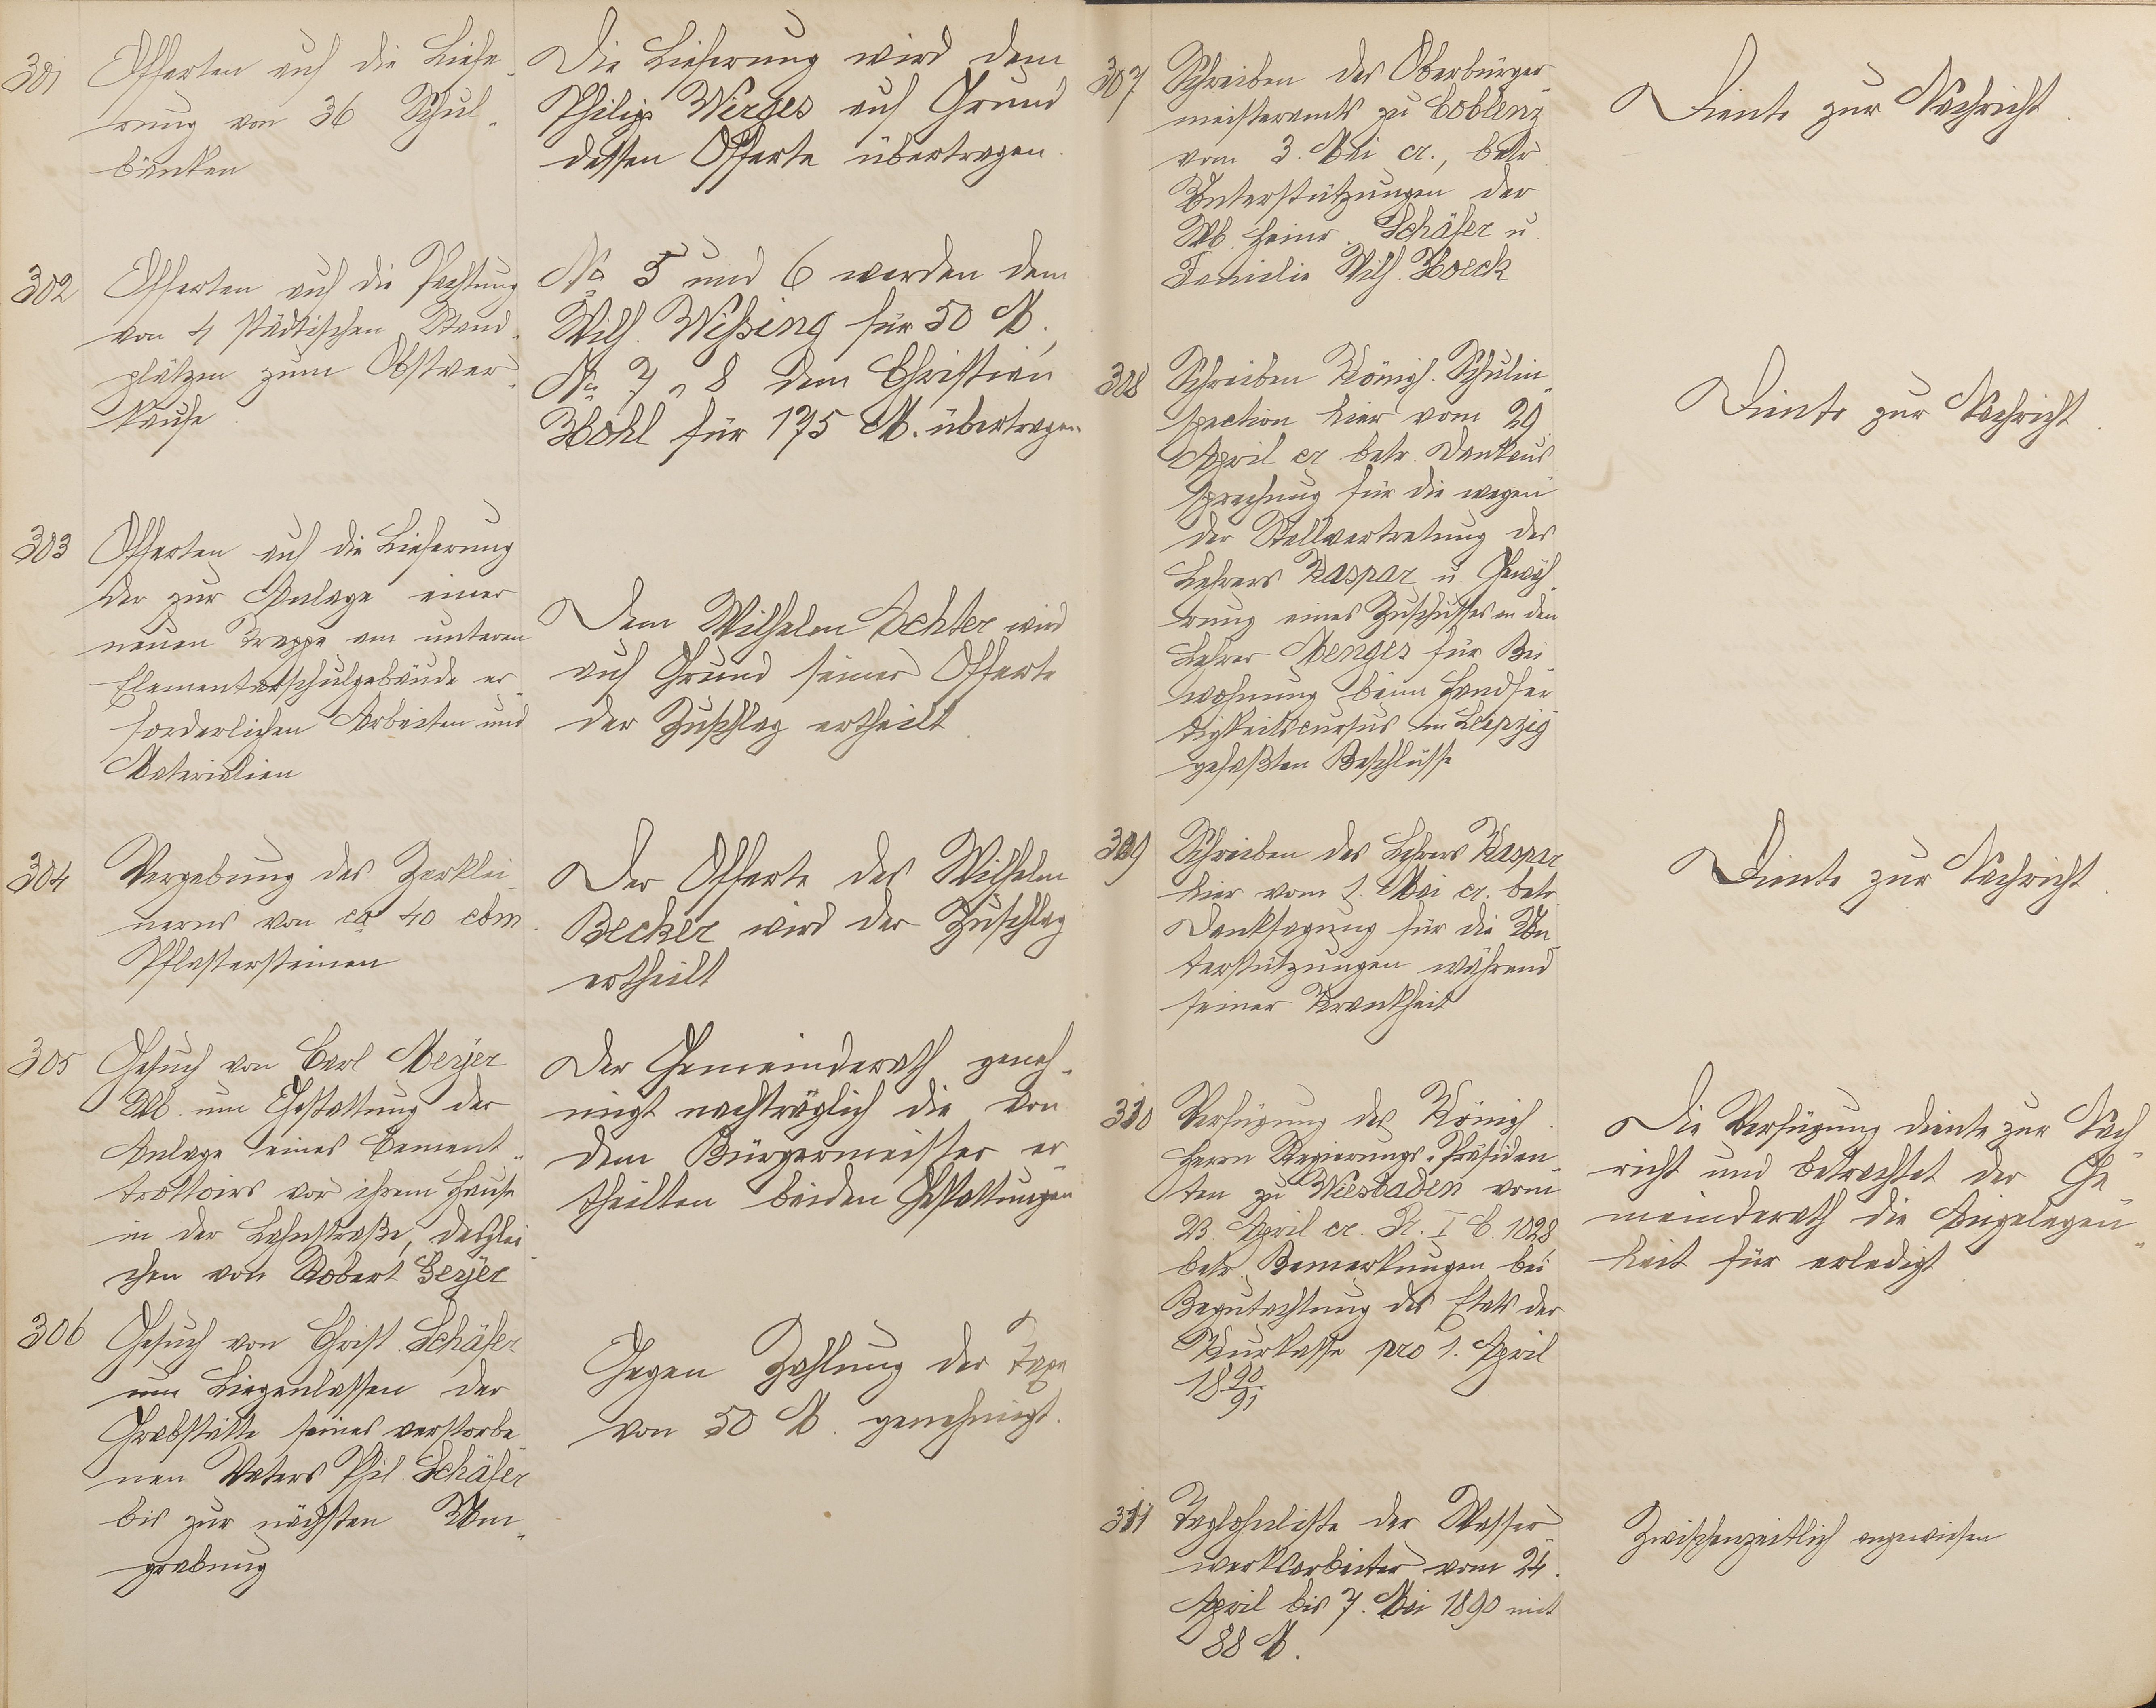 301
Offerten auf die Liefe-
rung von 36 Schul-
bänken
Die Lieferung wird dem
Philipp Werges auf Grund
dessen Offerte übertragen.
302
Offerten auf die Pachtung
von 4 städtischen Stand-
plätzen zum Obstver-
kaufe
No 5 und 6 werden dem
Wilh. Wißing für 50 M.,
No 7 u 8 dem Christian
Hohl für 175 M. übertragen
303
Offerten auf die Lieferung
der zur Anlage einer
neuen Treppe am unteren
Elementarschulgebäude er-
forderlichen Arbeiten und
Materialien
Dem Wilhelm Achter wird
auf Grund seiner Offerte
der Zuschlag ertheilt.
304
Vergebung des Zerklei-
nerns von ca 40 cbm
Pflastersteinen
Der Offerte des Wilhelm
Becker wird der Zuschlag
ertheilt
305
Gesuch von Carl Meyer
Wb. um Gestattung der
Anlage eines Cement-
trottoirs vor ihrem Hause
in der Lahnstraße, desglei-
chen von Robert Beyer
Der Gemeinderath geneh-
migt nachträglich die von
dem Bürgermeister er-
theilten beiden Gestattungen
306
Gesuch von Christ. Schäfer
um Liegenlassen der
Grabstätte seines verstorbe-
nen Vaters Phil. Schäfer
bis zur nächsten Um-
grabung
Gegen Zahlung der Taxe
von 50 M. genehmigt.
307
Schreiben des Oberbürger-
meisteramts zu Coblenz
vom 3. Mai cr., betr.
Unterstützungen der
Wb. Heinr. Schäfer u.
Familie Wilh. Hoeck
Diente zur Nachricht.
308
Schreiben Königl. Schulin-
spection hier vom 29
April cr. betr. Dankaus-
sprechung für die wegen
der Stellvertretung des
Lehrers Kaspar u. Gewäh-
rung eines Zuschusses an den
Lehrer Menges für Bei-
wohnung beim Handfer-
tigkeitscursus in Leipzig
gefaßten Beschlüsse
Diente zur Nachricht.
309
Schreiben des Lehrers Kaspar
hier vom 1. Mai cr. betr.
Danksagung für die Un-
terstützungen während
seiner Krankheit
Diente zur Nachricht.
310
Verfügung des Königl.
Herrn Regierungs-Präsiden-
ten zu Wiesbaden vom
23 April cr. Pr. I C. 1028
betr. Bemerkungen bei
Begutachtung des Etats der
Kurkasse pro 1. April
1890/91
Die Verfügung diente zur Nach-
richt und betrachtet der Ge-
meinderath die Angelegen-
heit für erledigt
311
Taglohnliste der Wasser-
werksarbeiter vom 24.
April bis 7. Mai 1890 mit
88 M.
Zwischenzeitlich angewiesen